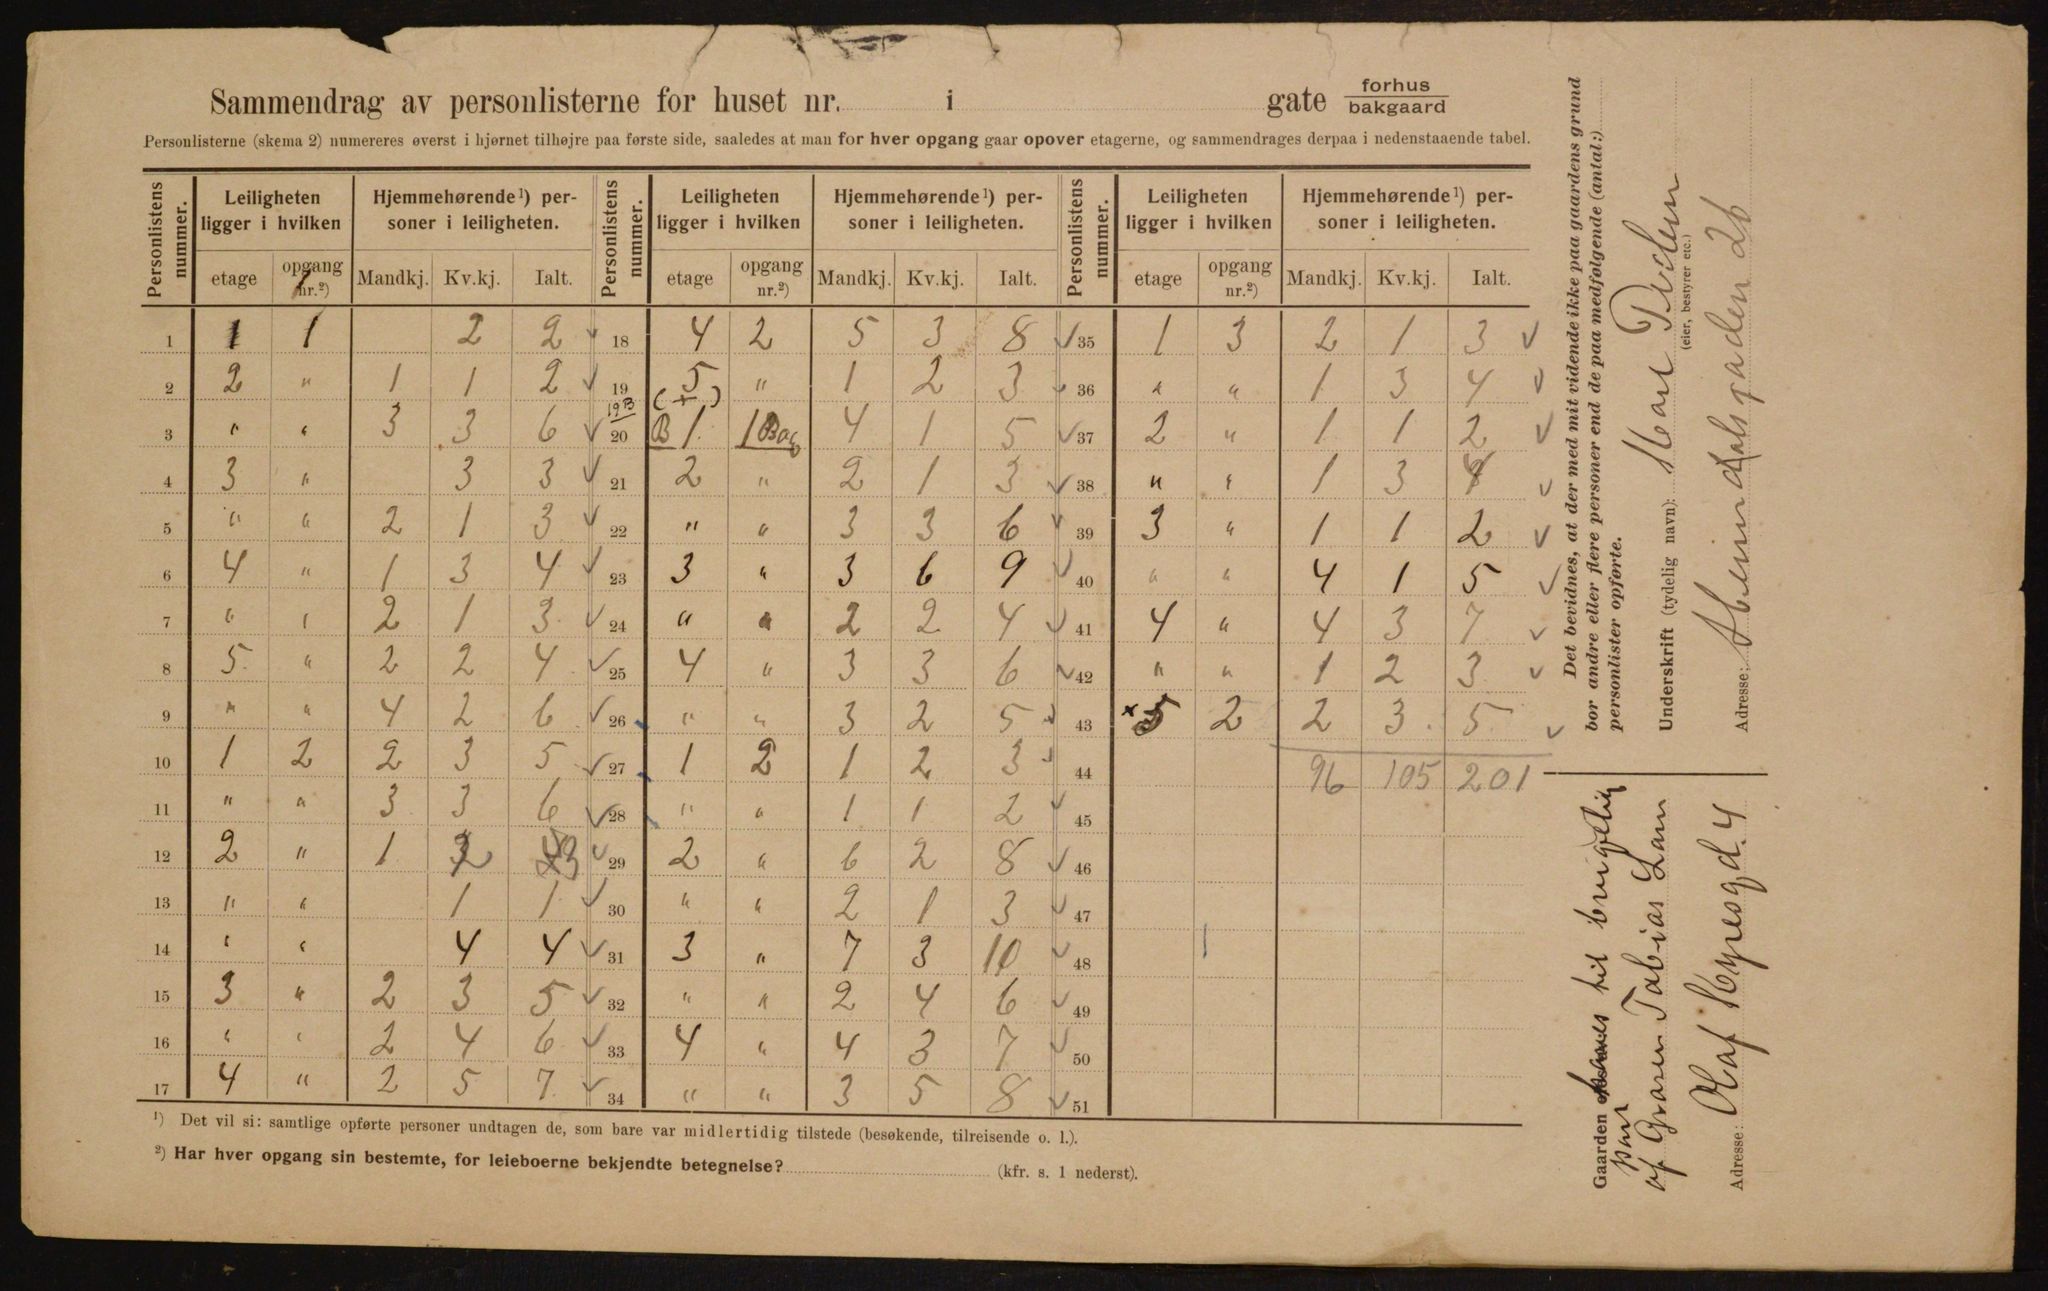 Sammendrag av personlisterne for huset nr. i gate forhus bakgaard
Personlisterne (skema 2) numereres øverst i hjørnet tilhøjre paa første side, saaledes at man for hver opgang gaar opover etagerne, og sammendrages derpaa i nedenstaaende tabel.
Personlistens nummer. Leiligheten ligger i hvilken Hjemmehørende ¹) personer i leiligheten. Personlistens nummer. Leiligheten ligger i hvilken Hjemmehørende ¹) personer i leiligheten. Personlistens nummer. Leiligheten ligger i hvilken Hjemmehørende ¹) personer i leiligheten.
etage opgang nr.²) Mandkj. Kv.kj. Ialt. etage opgang nr.²) Mandkj. Kv.kj. Ialt. etage opgang nr.²) Mandkj. Kv.kj. Ialt.
1 1 1 2 2 18 4 2 5 3 8 35 1 3 2 1 3
2 2 " 1 1 2 19 5 " 1 2 3 36 " " 1 3 4
3 " " 3 3 6 20 B 1 1 Bag 4 1 5 37 2 " 1 1 2
4 3 " 3 3 21 2 " 2 1 3 38 " " 1 3 4
5 " " 2 1 3 22 " " 3 3 6 39 3 " 1 1 2
6 4 " 1 3 4 23 3 " 3 6 9 40 " " 4 1 5
7 " " 2 1 3 24 " " 2 2 4 41 4 " 4 3 7
8 5 " 2 2 4 25 4 " 3 3 6 42 " " 1 2 3
9 " " 4 2 6 26 " " 3 2 5 43 × 5 2 2 3 5
10 1 2 2 3 5 27 1 2 1 2 3 44 96 105 201
11 " " 3 3 6 28 " " 1 1 2 45
12 2 " 1 2 3 29 2 " 6 2 8 46
13 " " 1 1 30 " " 2 1 3 47
14 " " 4 4 31 3 " 7 3 10 48
15 3 " 2 3 5 32 " " 2 4 6 49
16 " " 2 4 6 33 4 " 4 3 7 50
17 4 " 2 5 7 34 " " 3 5 8 51
¹) Det vil si: samtlige opførte personer undtagen de, som bare var midlertidig tilstede (besøkende, tilreisende o. l.).
²) Har hver opgang sin bestemte, for leieboerne bekjendte betegnelse? (kfr. s. 1 nederst).
Det bevidnes, at der med mit vidende ikke paa gaardens grund
bor andre eller flere personer end de paa medfølgende (antal:)
personlister opførte.
Underskrift (tydelig navn):
(eier, bestyrer etc.)
Adresse: 26
Gaarden til
af Tobias Lam
Adresse: Olaf 4